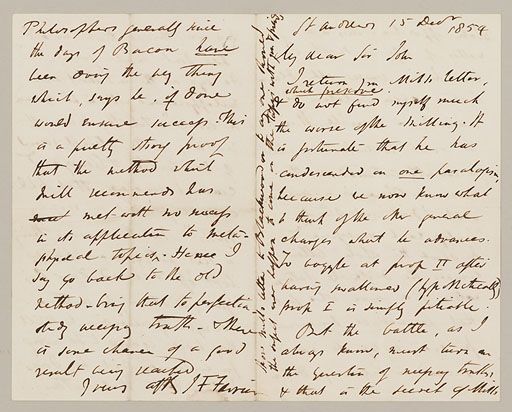 St Andrews 15 Decr 1854
My dear Sir John
I return you Mill's letter,
which preserve.
& do not find myself much
the worse of the milling. It
is fortunate that he has
condescended on one paralogism,
because we now know what
to think of the other general
charges which he advances.
To boggle at prop II after
having swallowed (hypothetically)
prop I is simply pitiable.
But the battle, as I
always knew, must turn on
the question of necessary truths,
& that is the secret of Mill's
Philosophers generally since
the days of Bacon have
been doing the very thing
which, says he, if done
would ensure success. This
is a pretty strong proof
that the method which
Mill recommends has
met with no success
in its application to meta-
physical topics. Hence I
say go back to the old
method – bring that to perfection
study necessary truth – & there
is some chance of a good
result being reached
Yours affly J F Ferrier
Mill's letter to Blackwood or to any one